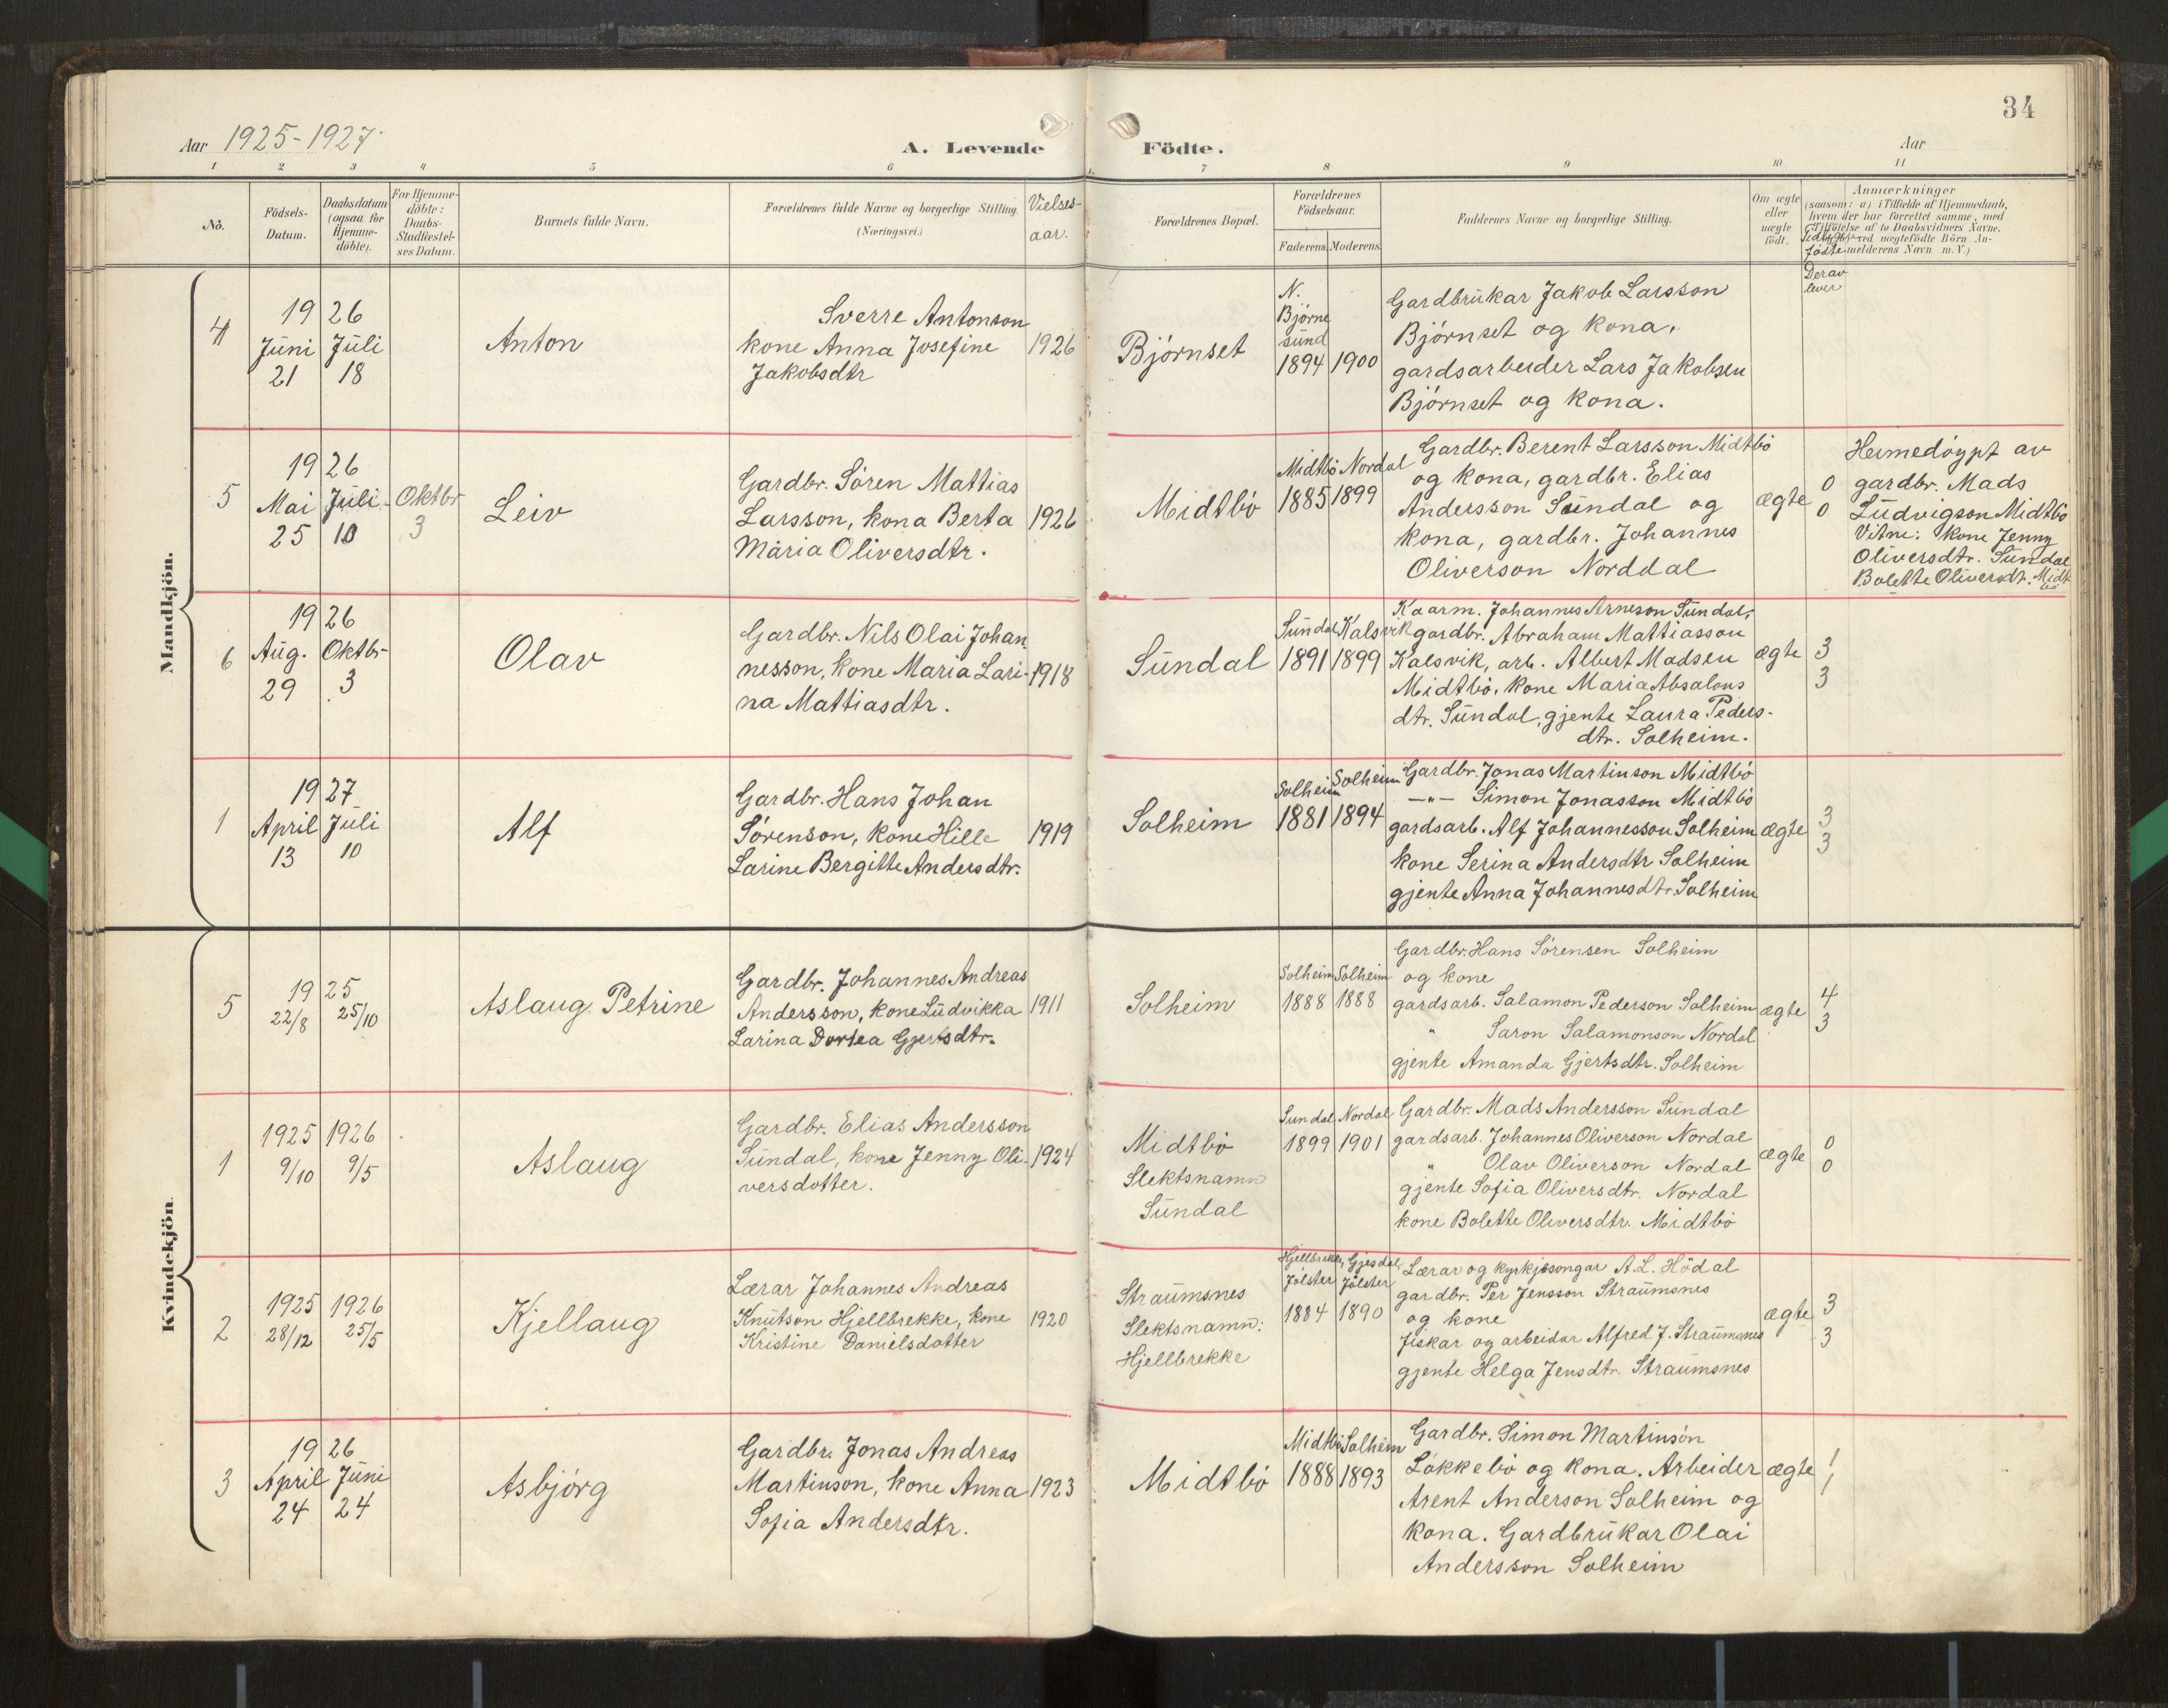 34
Aar 1925-1927.
A. Levende
Födte.
Aar
1 2 3 4 5 6 7 8 9 10 11
No.
Födsels-
Datum.
Daabsdatum
(ogsaa for
Hjemme-
döbte).
For Hjemme-
döbte:
Daabs-
Stadfæstel-
ses Datum.
Barnets fulde Navn.
Forældrenes fulde Navne og borgerlige Stilling.
(Næringsvei.)
Vielses-
aar.
Forældrenes Bopæl.
Forældrenes
Födselsaar.
Faderens. Moderens.
Faddernes Navne og borgerlige Stilling.
Om ægte
eller
uægte
födt.
Anmærkninger
(saasom: a) i Tilfælde af Hjemmedaab,
hvem der har forrettet samme, med
Tilföielse af to Daabsvidners Navne.
b) ved uægtefödte Börn An-
melderens Navn m. V.)
Tidligere
födte
Derav
lever
Mandkjön.
4
19 26
Juni Juli
21 18
Anton
Sverre Antonson
kone Anna Josefine
Jakobsdtr
1926
Björnset
N.
Bjørne
sund
1894 1900
Gardbrukar Jakob Larsson
Björnset og kona,
gardsarbeider Lars Jakobsen
Björnset og kona.
5
19 26
Mai Juli Oktbr
25 10 3
Leiv
Gardbr. Sören Mattias
Larsson, kona Berta
Maria Oliversdtr.
1926
Midtbö
Midtbö Nordal
1885 1899
Gardbr. Berent Larsson Midtbö
og kona, gardbr. Elias
Andersson Sundal og
kona, gardbr. Johannes
Oliverson Norddal
ægte
0
0
Heimedöypt av
gardbr. Mads
Ludvigson Midtbö
Vitne: kone Jenny
Oliversdtr. Sundal
Bolette Oliversdt. Midt
bö
6
19 26
Aug. Oktbr-
29 3
Olav
Gardbr. Nils Olai Johan
nesson, kone Maria Lari-
na Mattiasdtr.
1918
Sundal
Sundal Kalsvik
1891 1899
Kaarm. Johannes Arneson Sundal,
gardbr. Abraham Mattiasson
Kalsvik, arb. Albert Madsen
Midtbö, kone Maria Absalons
dtr. Sundal, gjente Laura Peders-
dtr. Solheim.
ægte
3
3
1
19 27
April Juli
13 10
Alf
Gardbr. Hans Johan
Sörenson, kone Hille
Larine Bergitte Andersdtr.
1919
Solheim
Solheim Solheim
1881 1894
Gardbr. Jonas Martinson Midtbö
—"— Simon Jonasson Midtbö
gardsarb. Alf Johannesson Solheim
kone Serina Andersdtr Solheim
gjente Anna Johannesdtr Solheim
ægte
3
3
Kvindekjön
5
19 25
22/8 25/10
Aslaug Petrine
Gardbr. Johannes Andreas
Andersson, kone Ludvikka
Larina Dortea Gjertsdtr.
1911
Solheim
Solheim Solheim
1888 1888
Gardbr. Hans Sörensen Solheim
og kone
gardsarb. Salamon Pederson Solheim
" Saron Salamonson Nordal
gjente Amanda Gjertsdtr. Solheim
ægte
4
3
1
1925 1926
9/10 9/5
Aslaug
Gardbr. Elias Andersson
Sundal, kone Jenny Oli-
versdotter.
1924
Midtbö
Slektsnamn
Sundal
Sundal Nordal
1899 1901
Gardbr. Mads Andersson Sundal
gardsarb. Johannes Oliverson Nordal
" Olav Oliverson Nordal
gjente Sofia Oliversdtr. Nordal
kone Bolette Oliversdtr. Midtbö
ægte
0
0
2
1925 1926
28/12 25/5
Kjellaug
Lærar Johannes Andreas
Knutson Hjellbrekke, kone
Kristine Danielsdotter
1920
Straumsnes
Slektsnamn:
Hjellbrekke
Hjellbrekke, Gjesdal,
Jølster Jølster
1884 1890
Lærar og kyrkjesongar A.L. Hödal
gardbr. Per Jensson Straumsnes
og kone
fiskar og arbeidar Alfred J. Straumsnes
gjente Helga Jensdtr. Straumsnes
ægte
3
3
3
19 26
April Juni
24 24
Asbjörg
Gardbr. Jonas Andreas
Martinson, kone Anna
Sofia Andersdtr.
1923
Midtbö
Midtbö Solheim
1888 1893
Gardbr. Simon Martinson
Lökkebö og kona. Arbeider
Arent Anderson Solheim og
kona. Gardbrukar Olai
Andersson Solheim
ægte
1
1